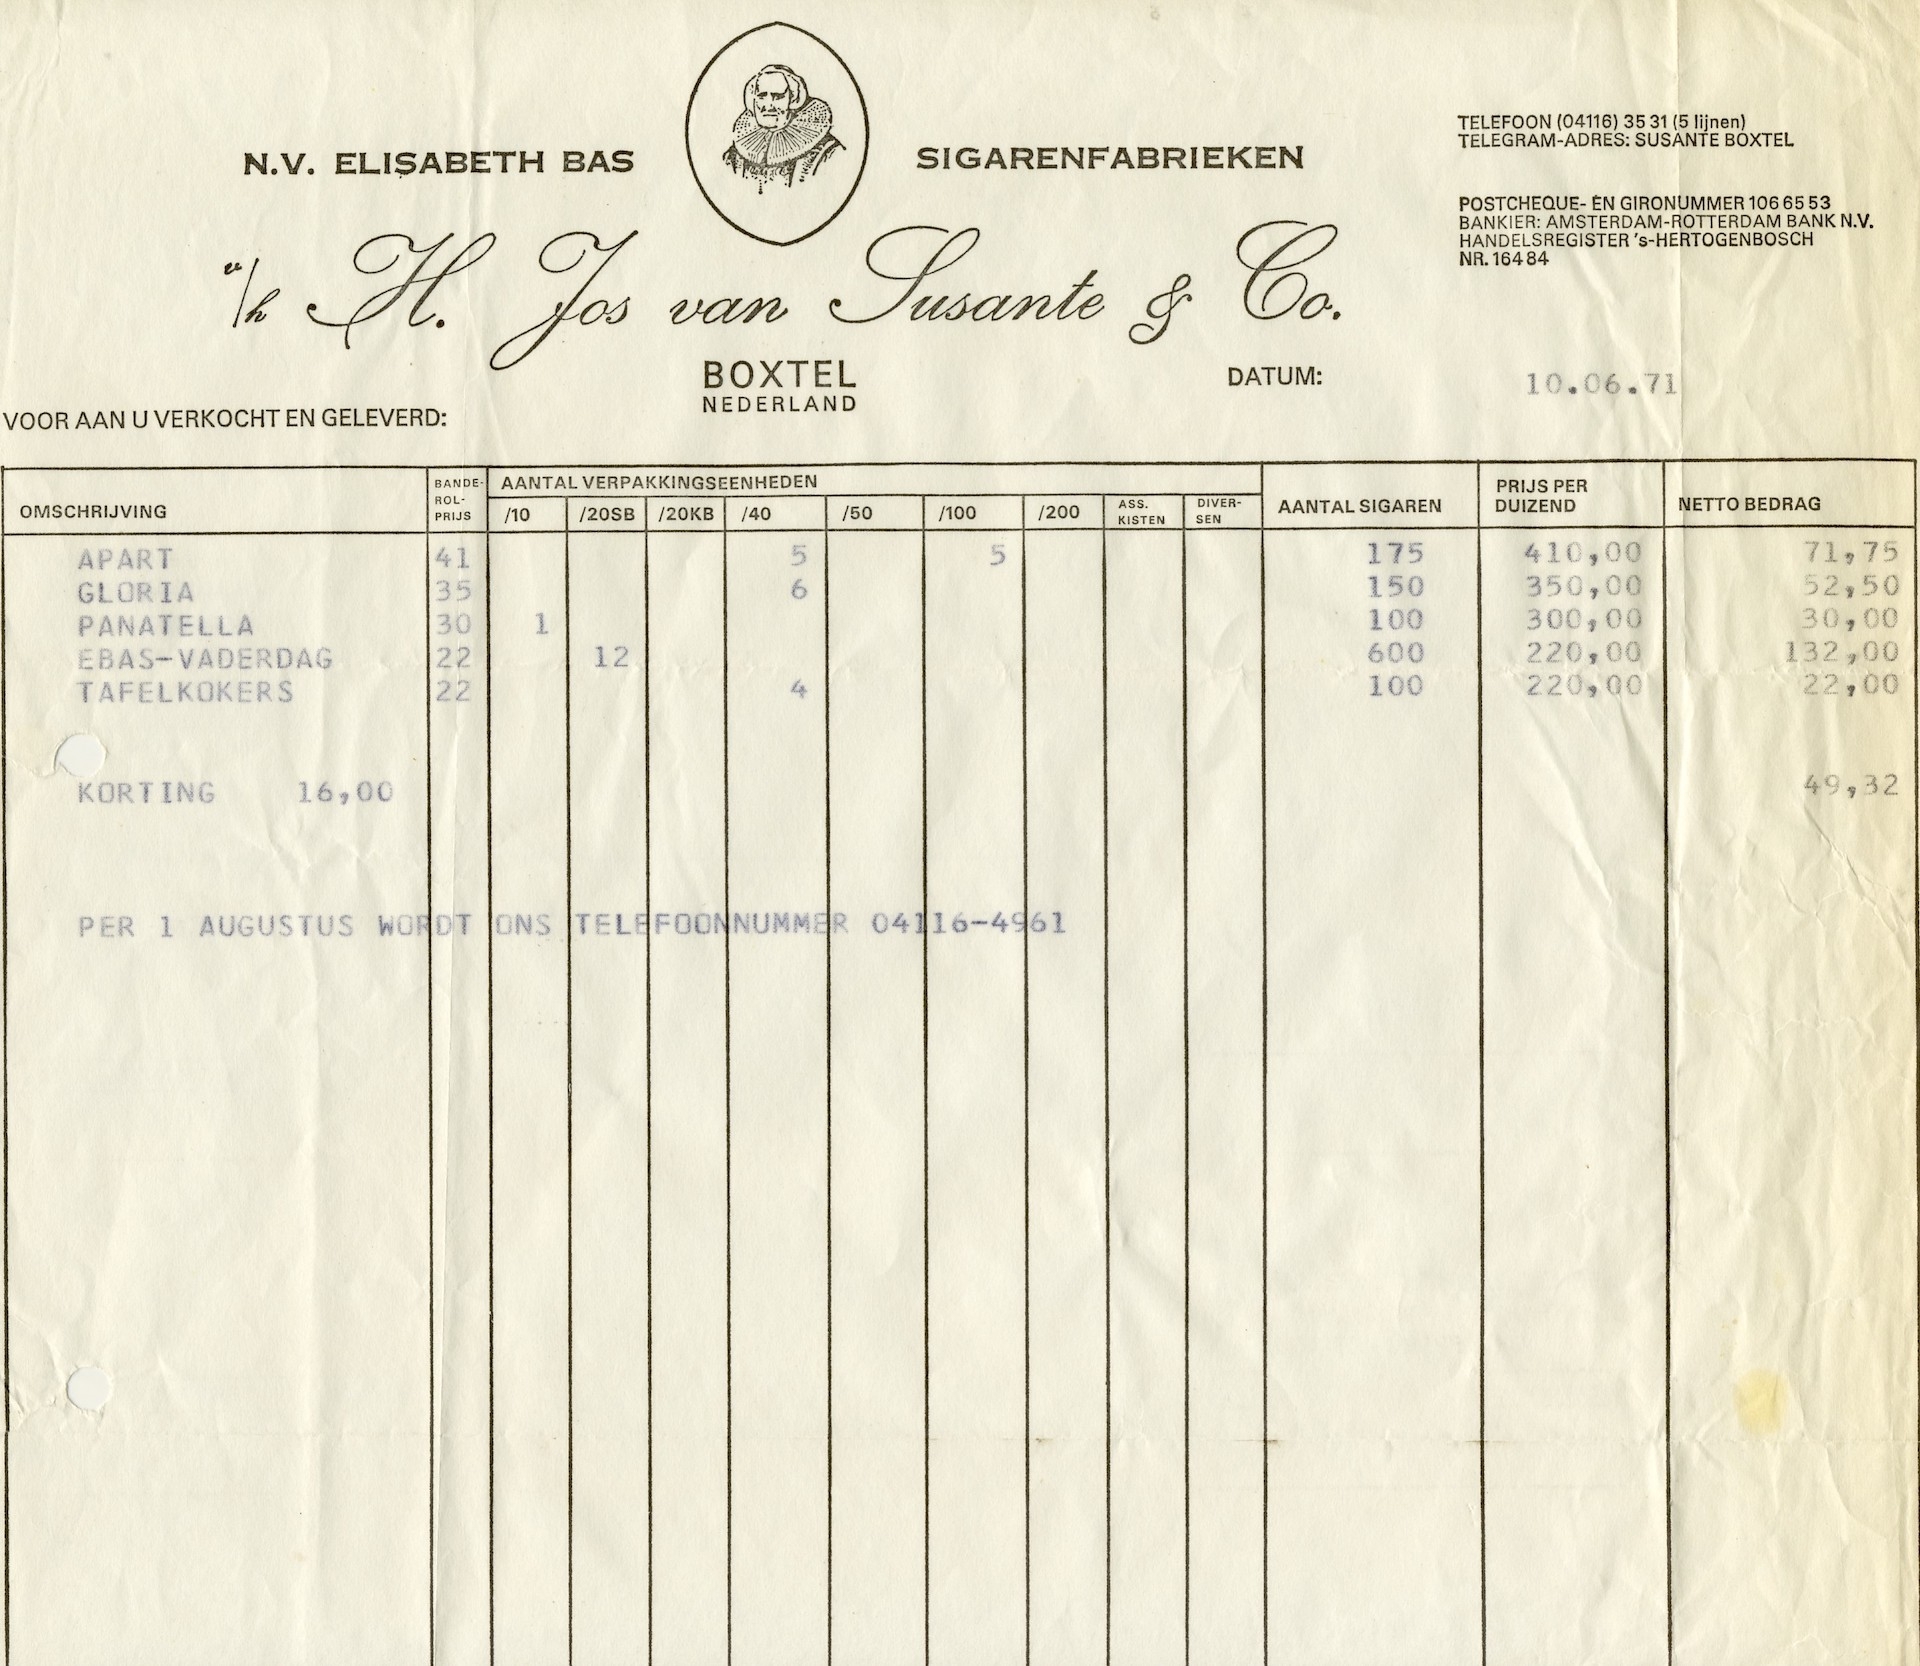 N.V. ELISABETH BAS SIGARENFABRIEKEN
v/h H. Jos van Susante & Co.
BOXTEL
NEDERLAND
TELEFOON (04116) 35 31 (5 lijnen)
TELEGRAM-ADRES: SUSANTE BOXTEL
POSTCHEQUE- EN GIRONUMMER 106 65 53
BANKIER: AMSTERDAM-ROTTERDAM BANK N.V.
HANDELSREGISTER 's-HERTOGENBOSCH
NR. 16484
DATUM: 10.06.71
VOOR AAN U VERKOCHT EN GELEVERD:
OMSCHRIJVING BANDE-ROL-PRIJS AANTAL VERPAKKINGSEENHEDEN AANTAL SIGAREN PRIJS PER DUIZEND NETTO BEDRAG
/10 /20SB /20KB /40 /50 /100 /200 ASS. KISTEN DIVER-SEN
APART 41 5 5 175 410,00 71,75
GLORIA 35 6 150 350,00 52,50
PANATELLA 30 1 100 300,00 30,00
EBAS-VADERDAG 22 12 600 220,00 132,00
TAFELKOKERS 22 4 100 220,00 22,00
KORTING 16,00 49,32
PER 1 AUGUSTUS WORDT ONS TELEFOONNUMMER 04116-4961